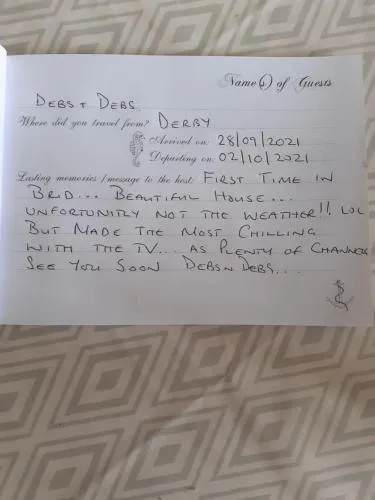 Name(s) of Guests
DEBS + DEBS.
Where did you travel from? DERBY
Arrived on: 28/09/2021
Departing on: 02/10/2021
Lasting memories / message to the host: FIRST TIME IN
BRID... BEAUTIFUL HOUSE...
UNFORTUNITLY NOT THE WEATHER!! LOL
BUT MADE THE MOST CHILLING
WITH THE TV... AS PLENTY OF CHANNELS
SEE YOU SOON DEBS N DEBS...